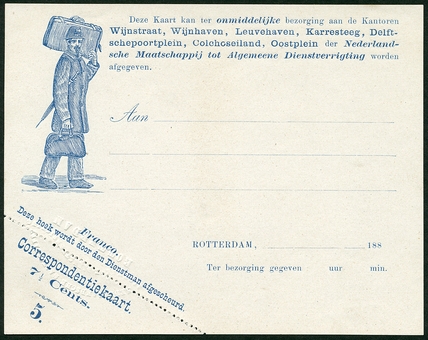 Deze Kaart kan ter onmiddelijke bezorging aan de Kantoren
Wijnstraat, Wijnhaven, Leuvehaven, Karresteeg, Delft-
schepoortplein, Colchoseiland, Oostplein der Nederland-
sche Maatschappij tot Algemeene Dienstverrigting worden
afgegeven.
Aan
Franco.
Deze hoek wordt door den Dienstman afgescheurd.
Correspondentiekaart.
7½ Cents.
5.
ROTTERDAM, 188
Ter bezorging gegeven uur min.